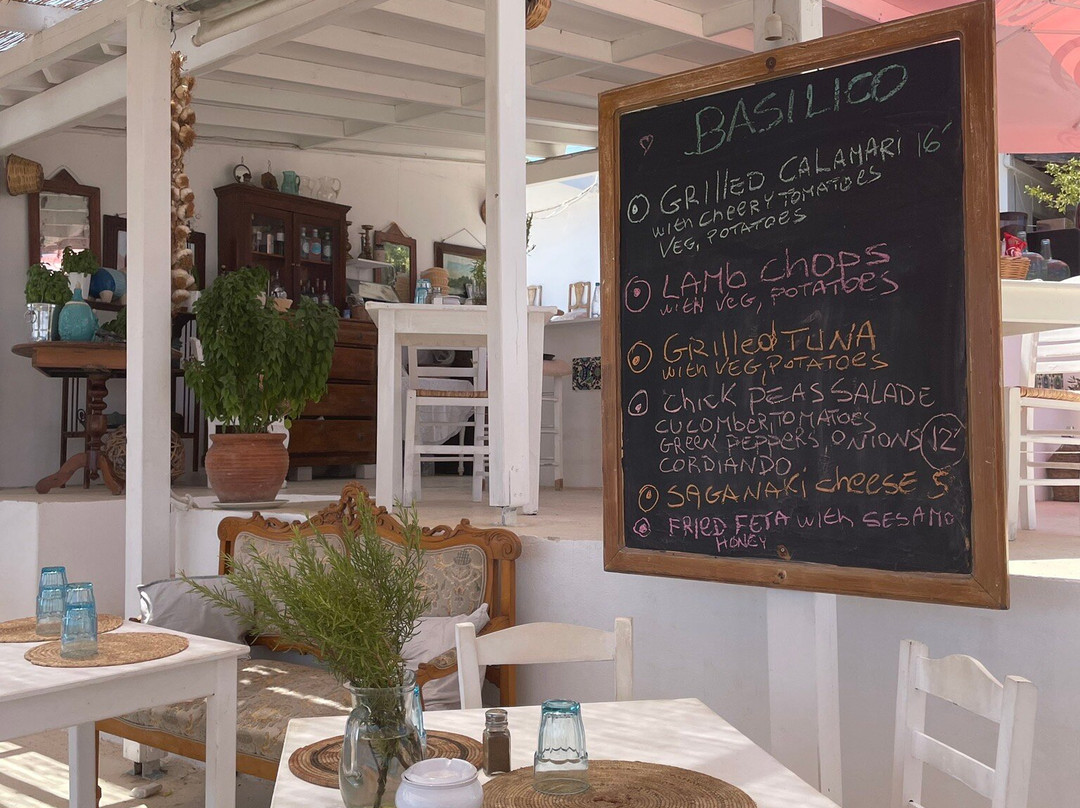 BASILICO
GRILLED CALAMARI 16
with CHEERY TOMATOES
VEG, POTATOES
LAMB Chops
WITH VEG, POTATOES
GRILLED TUNA
WITH VEG, POTATOES
CHICK PEAS SALADE
CUCOMBER TOMATOES
GREEN PEPPERS, ONIONS 12
CORDIANDO
SAGANAKI cheese 5
FRIED FETA with SESAMO
HONEY